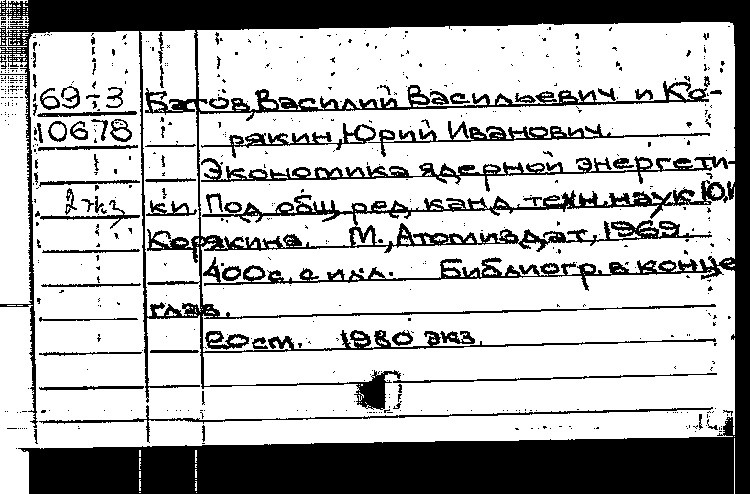 69-3
10678
2 экз
Батов, Василий Васильевич и Ко-
рякин, Юрий Иванович.
Экономика ядерной энергети-
ки. Под общ. ред. канд. техн. наук Ю.И.
Корякина. М., Атомиздат, 1969.
400 с. с илл. Библиогр. в конце
глав.
20 см. 1980 экз.